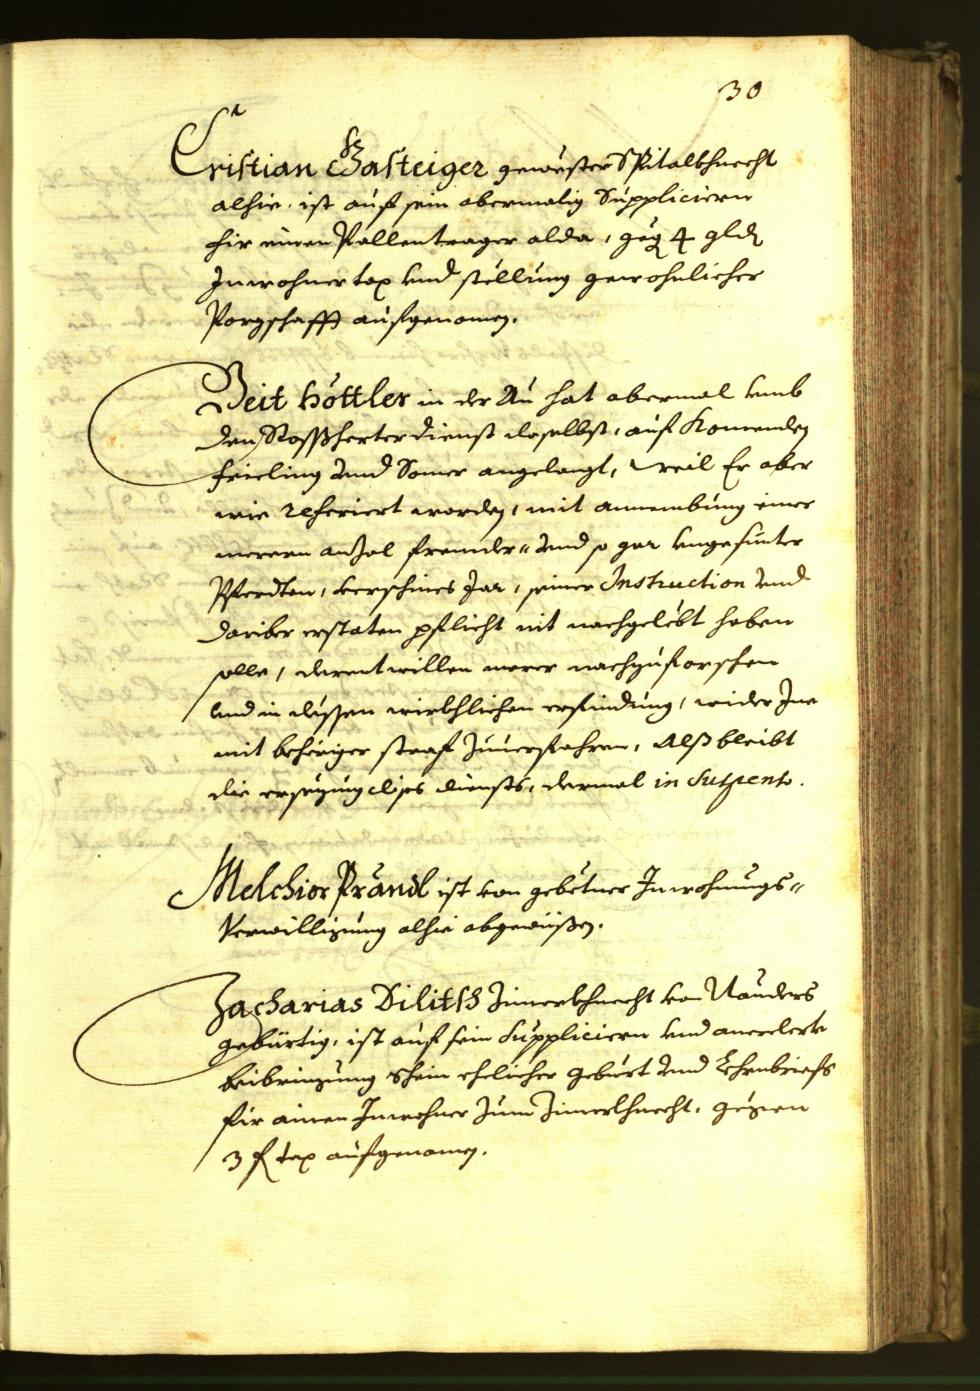 30
Cristian Gasteiger gewester Spitalkhnecht
alhie, ist auf sein abermalig Suppliciern
fir einen Pallentrager alda, geg 4 gld
Inwohner tax und stellung gewohnlicher
Porgschafft aufgenomen.
Veit Höttler in der Au hat abermal umb
den Rossherter dienst daselbst, auf Komenden
frieling und Somer angelangt, weil Er aber
wie referiert worden, mit annembung einer
merern anzal frembder und so gar ungesunter
Pferdten, verschines Jar, seiner Instruction und
dariber erstaten pflicht nit nachgelebt haben
solle, derentwillen merer nachzuforschen
und in dessen wirkhlichen erfindung, wider Ine
mit behöriger straf zuuerfahren, Alß bleibt
die ersezung dises diensts, dermal in Suspenso.
Melchior Prändl ist von gebetner Inwohnungs-
Verwilligung alhie abgewisen.
Zacharias Dilitsch Zimerkhnecht von Nauders
gebürtig, ist auf sein Suppliciern und anerelerte
beibringung schein ehelicher geburt und Lehrnbriefs
fir ainen Inwohner zum Zimerkhnecht, gegen
3 f tax aufgenomen.